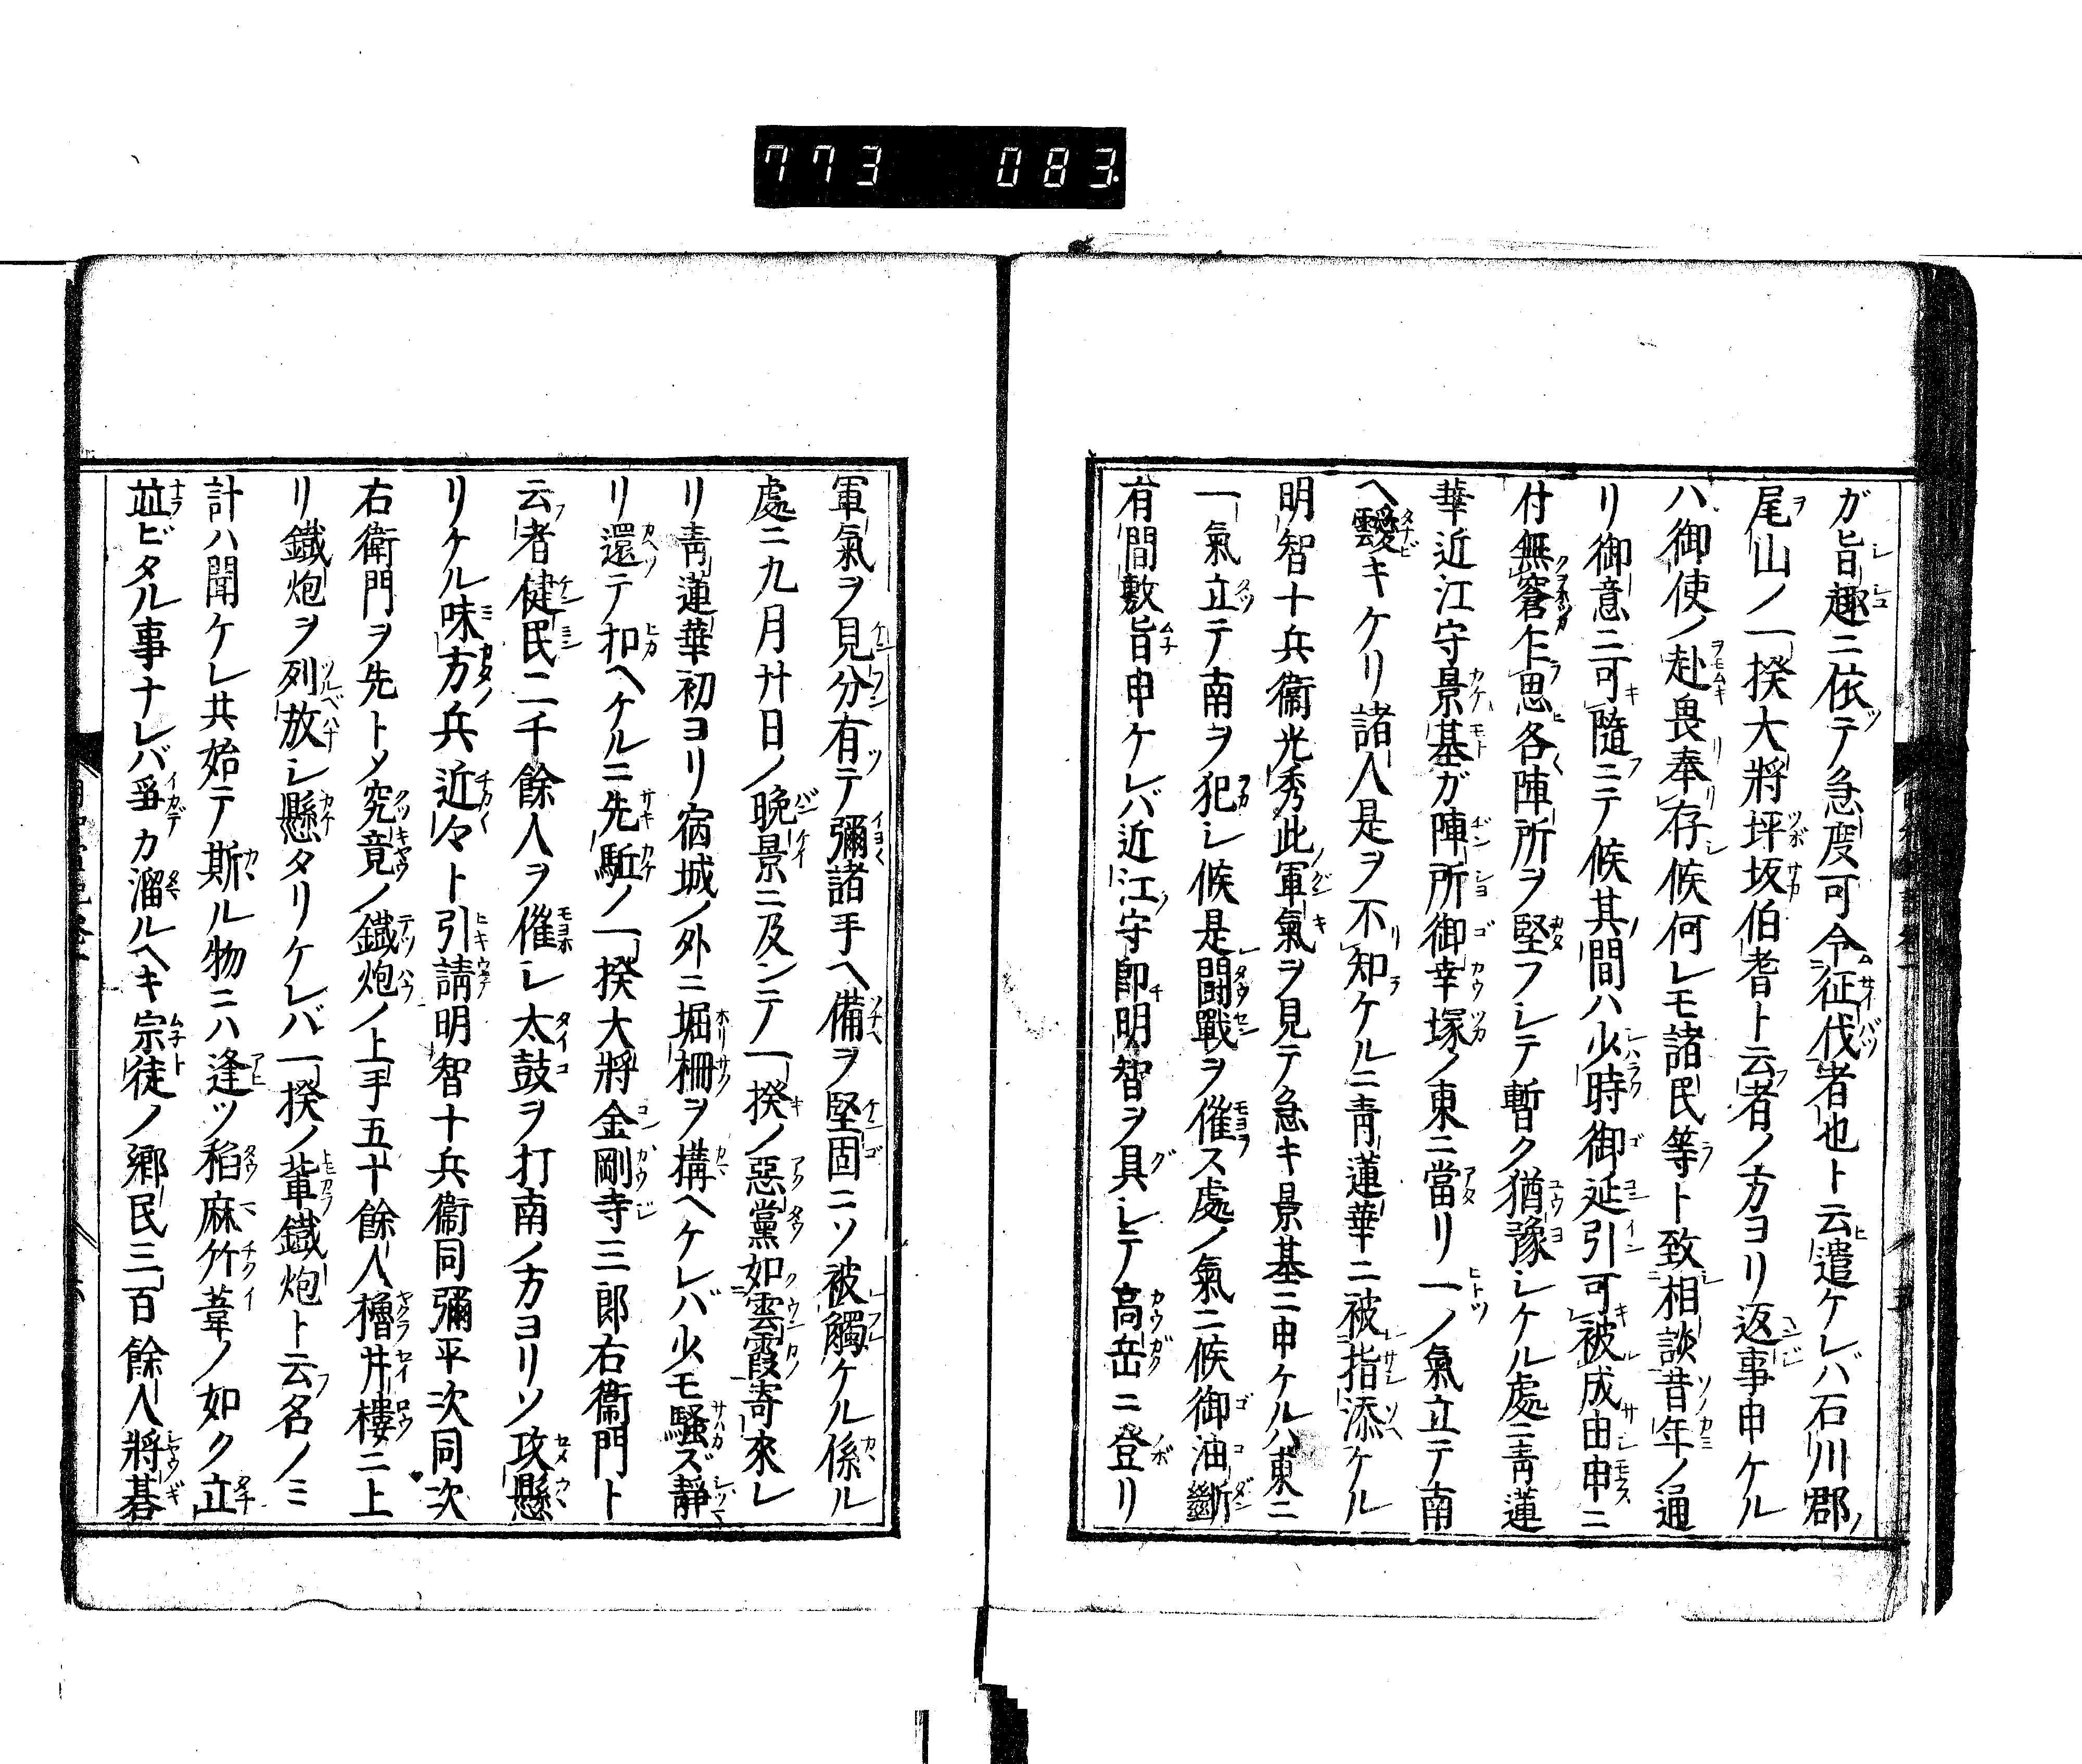 773 083
ガ旨趣ニ依テ急度可令征伐者也ト云遣ケレバ石川郡
尾山ノ一揆大將坪坂伯耆ト云者ノ方ヨリ返事申ケル
ハ御使ノ赴畏奉存候何レモ諸民等ト致相談昔年ノ通
リ御意ニ可隨ニテ候其間ハ少時御延引可被成由申ニ
付無窘乍思各陣所ヲ堅フシテ暫ク猶豫シケル處ニ靑蓮
華近江守景基ガ陣所御幸塚ノ東ニ當リ一ノ氣立テ南
ヘ靉キケリ諸人是ヲ不知ケルニ靑蓮華ニ被指添ケル
明智十兵衞光秀此軍氣ヲ見テ急キ景基ニ申ケルハ東ニ
一氣立テ南ヲ犯シ候是鬪戰ヲ催ス處ノ氣ニ候御油斷
有間敷旨申ケレバ近江守卽明智ヲ具シテ高岳ニ登リ
軍氣ヲ見分有テ彌諸手ヘ備ヲ堅固ニソ被觸ケル係ル
處ニ九月廿日ノ晩景ニ及ンテ一揆ノ惡黨如雲霞寄來レ
リ靑蓮華初ヨリ宿城ノ外ニ堀柵ヲ構ヘケレバ少モ騷ズ靜
リ還テ扣ヘケルニ先駈ノ一揆大將金剛寺三郎右衞門ト
云者健民二千餘人ヲ催シ太鼓ヲ打南ノ方ヨリソ攻懸
リケル味方兵近々ト引請明智十兵衞同彌平次同次
右衞門ヲ先トメ究竟ノ鐵炮ノ上手五十餘人櫓井樓ニ上
リ鐵炮ヲ列放シ懸タリケレバ一揆ノ輩鐵炮ト云名ノミ
計ハ聞ケレ共始テ斯ル物ニハ逢ツ稻麻竹葦ノ如ク立
並ビタル事ナレバ爭カ溜ルヘキ宗徒ノ鄕民三百餘人將碁